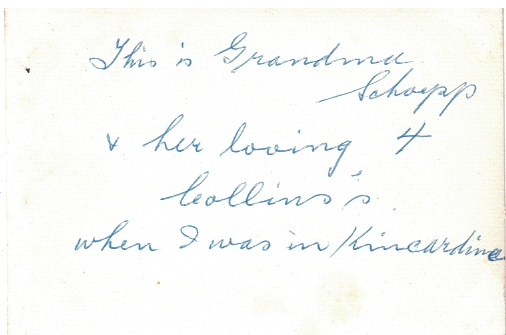 This is Grandma
Schoepp
& her loving 4
Collins's
when I was in Kincardine